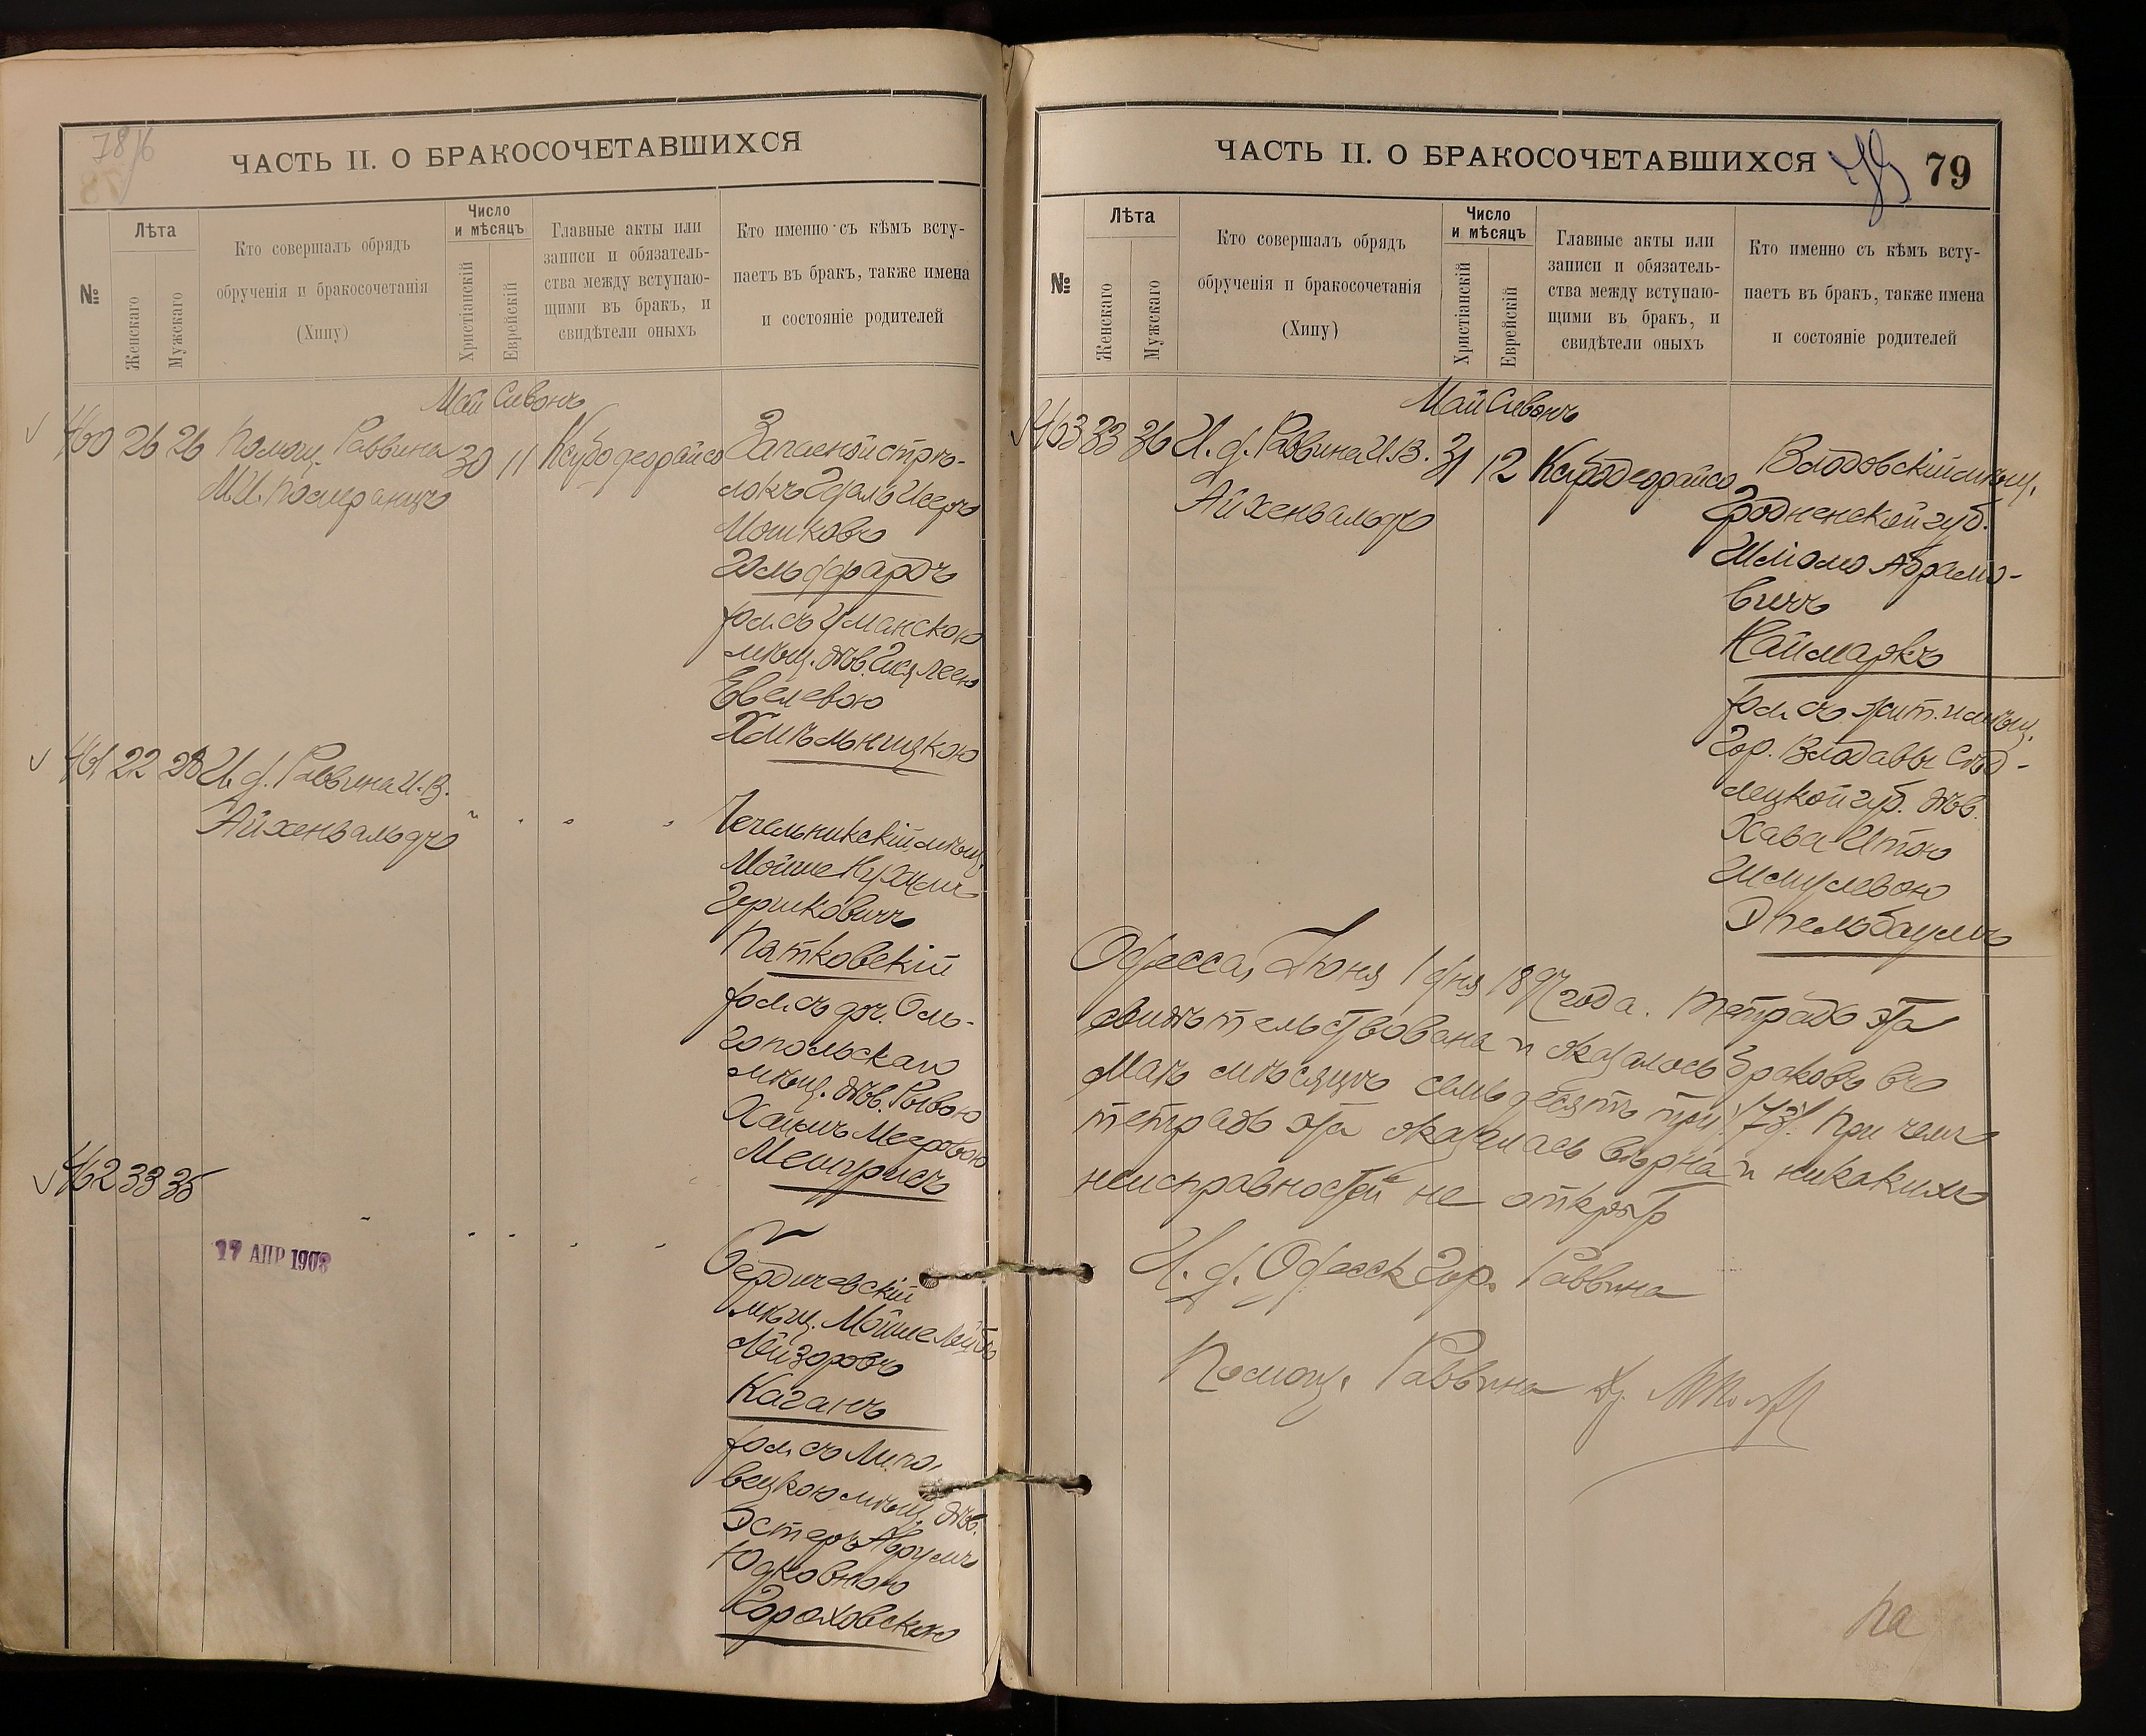 ЧАСТЬ II. О БРАКОСОЧЕТАВШИХСЯ
№
Лѣта
Женскаго
Мужскаго
Кто совершалъ обрядъ
обрученія и бракосочетанія
(Хипу)
Число
и мѣсяцъ
Христіанскій
Еврейскій
Главные акты или
записи и обязатель-
ства между вступаю-
щими въ бракъ, и
свидѣтели оныхъ
Кто именно съ кѣмъ всту-
паетъ въ бракъ, также имена
и состояніе родителей
Май Сивонъ
460 26 26 Помощ. Раввина 30 11 Ксубо деорайсо Запасной стрѣ-
М.И. Померанцъ
локъ Идаль Исеръ
Мошковъ
Гольдфарбъ
хол. съ Уманскою
мѣщ. дѣв.
Евелевою
Хмѣльницкою
461 22 28 И. д. Раввина И. В.
Айхенвальдъ
Чечельникскій мѣщ.
Мойше Нухимъ
Гершковичъ
Пятковскій
хол. съ дч. Оль-
гопольскаго
мѣщ. дѣв. Рывою
Хаимъ Мееровою
462 33 35
17 АПР 1908
Бердичевскій
мѣщ. Мойше Лейбъ
Лейзоровъ
Каганъ
хол. съ Липо-
вецкою мѣщ. дѣв.
Эстеръ Аврумъ
Юдковною
Гороховскою
ЧАСТЬ II. О БРАКОСОЧЕТАВШИХСЯ 79
№
Лѣта
Женскаго
Мужскаго
Кто совершалъ обрядъ
обрученія и бракосочетанія
(Хипу)
Число
и мѣсяцъ
Христіанскій
Еврейскій
Главные акты или
записи и обязатель-
ства между вступаю-
щими въ бракъ, и
свидѣтели оныхъ
Кто именно съ кѣмъ всту-
паетъ въ бракъ, также имена
и состояніе родителей
Май Сивонъ
463 33 36 И. д. Раввина И. В. 31 12 Ксубо деорайсо Влодовскій мѣщ.
Айхенвальдъ
Гродненской губ.
Шліомо Абрамо-
вичъ
Наймаркъ
хол. съ жит. и мѣщ.
Гор. Влодавы Сѣд-
лецкой губ. дѣв.
Хава Итою
Шмулевою
Эпельбаумъ
Одесса, Іюня 1 дня 1897 года. Тетрадь эта
свидѣтельствована и оказалось браковъ въ
Маѣ мѣсяцѣ семьдесятъ три /73/. При чемъ
тетрадь эта оказалась вѣрна и никакихъ
неисправностей не открыто
И. д. Одесск. Гор. Раввина
Помощ. Раввина